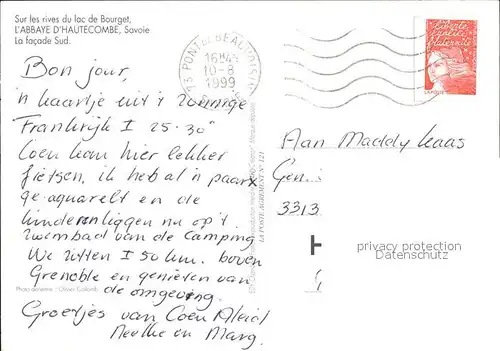 Sur les rives du lac de Bourget,
L'ABBAYE D'HAUTECOMBE, Savoie
La façade Sud.
73 PONT DE BEAUVOISIN
16H45
10-8
1999
liberté
égalité
fraternité
Bon jour,
'n kaartje uit 't zonnige
Frankrijk I 25-30°
Coen kan hier lekker
fietsen, ik heb al 'n paar x
ge-aquarelt en de
kinderen liggen nu op 't
zwembad van de camping
We zitten I 50 km. boven
Grenoble en genieten van
de omgeving.
Groetjes van Coen
en Marg.
Photo aérienne : Olivier
LA POSTE AGREMENT N° 121
Aan Maddy
Gen
3313
H
privacy protection
Datenschutz